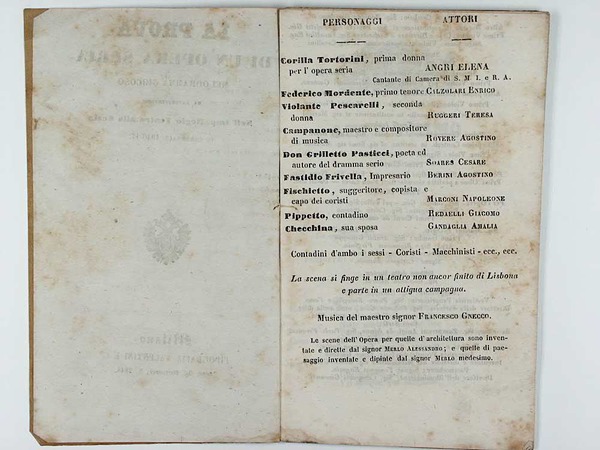 PERSONAGGI ATTORI
Corilla Tortorini, prima donna
per l' opera seria ANGRI ELENA
Cantante di Camera di S. M. I. e R. A.
Federico Mordente, primo tenore CALZOLARI ENRICO
Violante Pescarelli, seconda
donna RUGGERI TERESA
Campanone, maestro e compositore
di musica ROVERE AGOSTINO
Don Grilletto Pasticci, poeta ed
autore del dramma serio SOARES CESARE
Fastidio Frivella, Impresario BERINI AGOSTINO
Fischietto, suggeritore, copista e
capo dei coristi MARCONI NAPOLEONE
Pippetto, contadino REDAELLI GIACOMO
Checchina, sua sposa GANDAGLIA AMALIA
Contadini d'ambo i sessi - Coristi - Macchinisti - ecc., ecc.
La scena si finge in un teatro non ancor finito di Lisbona
e parte in un attigua campagna.
Musica del maestro signor FRANCESCO GNECCO.
Le scene dell' Opera per quelle d' architettura sono inven-
tate e dirette dal signor MERLO ALESSANDRO; e quelle di pae-
saggio inventate e dipinte dal signor MERLO medesimo.
LA PROVA
DI UN OPERA SERIA
Milano